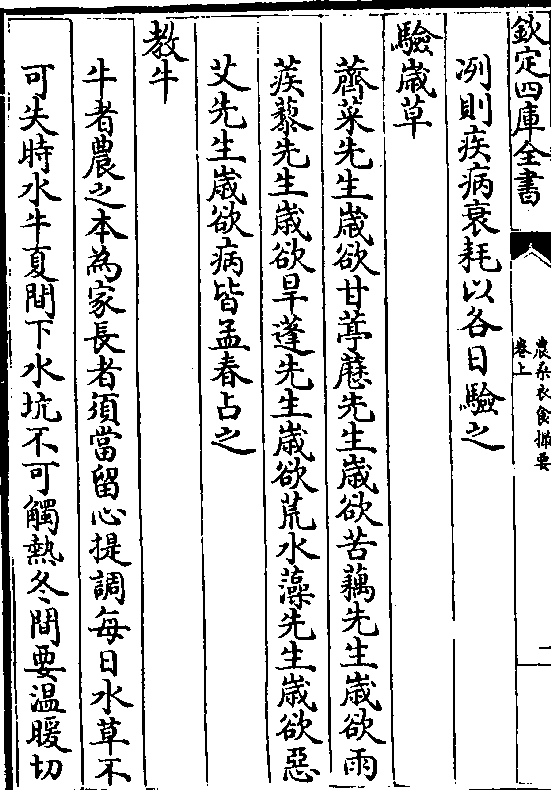 欽定四庫全書
農桑衣食撮要
卷上
一
冽則疾病衰耗以各日驗之
驗歳草
薺菜先生歳欲甘葶藶先生歳欲苦藕先生歳欲雨
蒺藜先生歳欲旱蓬先生歳欲荒水藻先生歳欲惡
艾先生歳欲病皆孟春占之
教牛
牛者農之本為家長者須當留心提調每日水草不
可失時水牛夏間下水坑不可觸熱冬間要温暖切